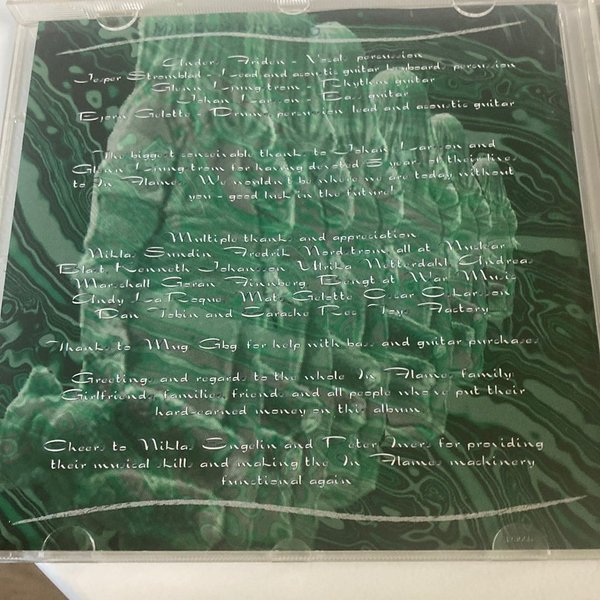 Anders Friden - Vocals, percussion
Jesper Stromblad - Lead and acoustic guitar, keyboards, percussion
Glenn Ljungstrom - Rhythm guitar
Johan Larsson - Bass guitar
Bjorn Gelotte - Drums, percussion, lead and acoustic guitar
The biggest conceivable thanks to Johan Larsson and
Glenn Ljungstrom for having devoted 5 years of their lives
to In Flames. We wouldn't be where we are today without
you - good luck in the future!
Multiple thanks and appreciation
Niklas Sundin Fredrik Nordstrom all at Nuclear
Blast Kenneth Johansson Ulrika Netterdahl Andreas
Marshall Goran Finnberg Bengt at War Music
Andy LaRoque Mats Gelotte Oscar O.Larsson
Dan Tobin and Earache Rec Toys Factory
Thanks to Mug Gbg for help with bass and guitar purchases
Greetings and regards to the whole In Flames family:
Girlfriends, families, friends and all people who've put their
hard-earned money on this album
Cheers to Niklas Engelin and Peter Iwers for providing
their musical skills and making the In Flames machinery
functional again